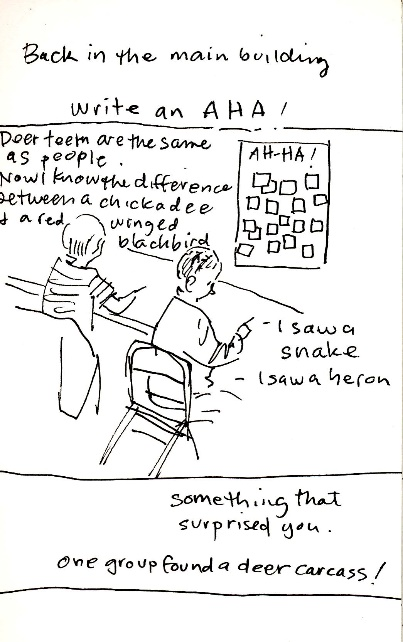 Back in the main building
Write an AHA!
Deer teeth are the same
as people.
Now I know the difference
between a chickadee
& a red winged
blackbird
AH-HA!
- I saw a
snake
- I saw a heron
something that
surprised you.
one group found a deer carcass!